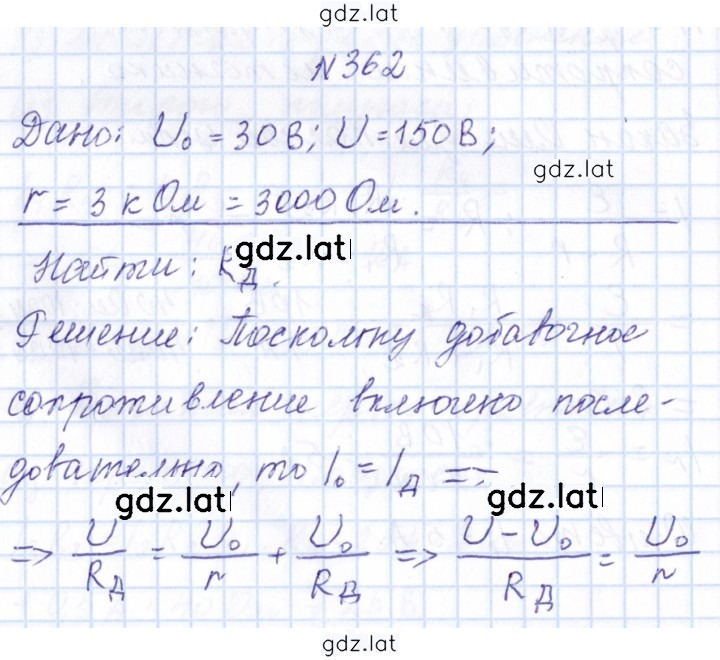 gdz.lat
N 362
Дано: U₀ = 30 В; U = 150 В;
gdz.lat
r = 3 кОм = 3000 Ом.
gdz.lat
Найти: R_Д.
Решение: Поскольку добавочное
сопротивление включено после-
довательно, то I₀ = I_Д =>
gdz.lat gdz.lat
=> U/R_Д = U₀/r + U₀/R_Д => (U - U₀)/R_Д = U₀/r
gdz.lat